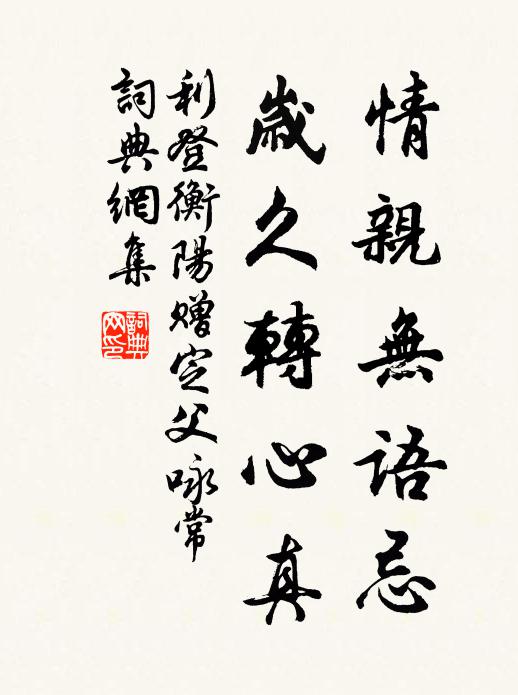 情親無語忌
歲久轉心真
利登衡陽贈定父咏常
詞典網集
詞典網印